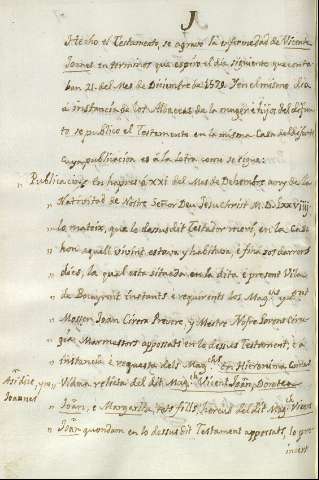 J
Hecho el Testamento, se agravò la enfermedad de Vicente
Joanes en terminos que espirò el dia siguiente que conta-
ban 21. del Mes de Diciembre de 1579. Y en el mismo dia
à instancia de los Albaceas de la muger è hijos del difun-
to se publicò el Testamento en la misma Casa del difunto
cuya publicacion es à la letra como se sigue:
„ Publicacio: En hapres à XXI del Mes de Dehembre any de la
„ Nativitad de Nostre Señor Deu Jesu Christ M. D. LXXVIIIJ.
„ lo mateix, que lo desus dit Testador morì, en la Casa
„ hon aquell vivint estava y habitava, è finà sos darrers
„ dies, la qual està situada en la dita è present Vila
„ de Bocayrent instants è requirents los Magchs y
„ Mossen Joan Cirera Prevere, y Mestre Nofre Lorens Ciru-
„ già Marmessors apposats en lo desus Testament, è a
„ instancia è requesta dels Magchs En Hieronima Comes
„ Viuda relicta del dit Magch Vicent Joan, Dorotea
Asi dice, y no
Joannes
„ Joan, e Margarita, tots fills, hereus del dit Magch Vicent
„ Joan quondam en lo dessus dit Testament apposats, lo pre-
insert